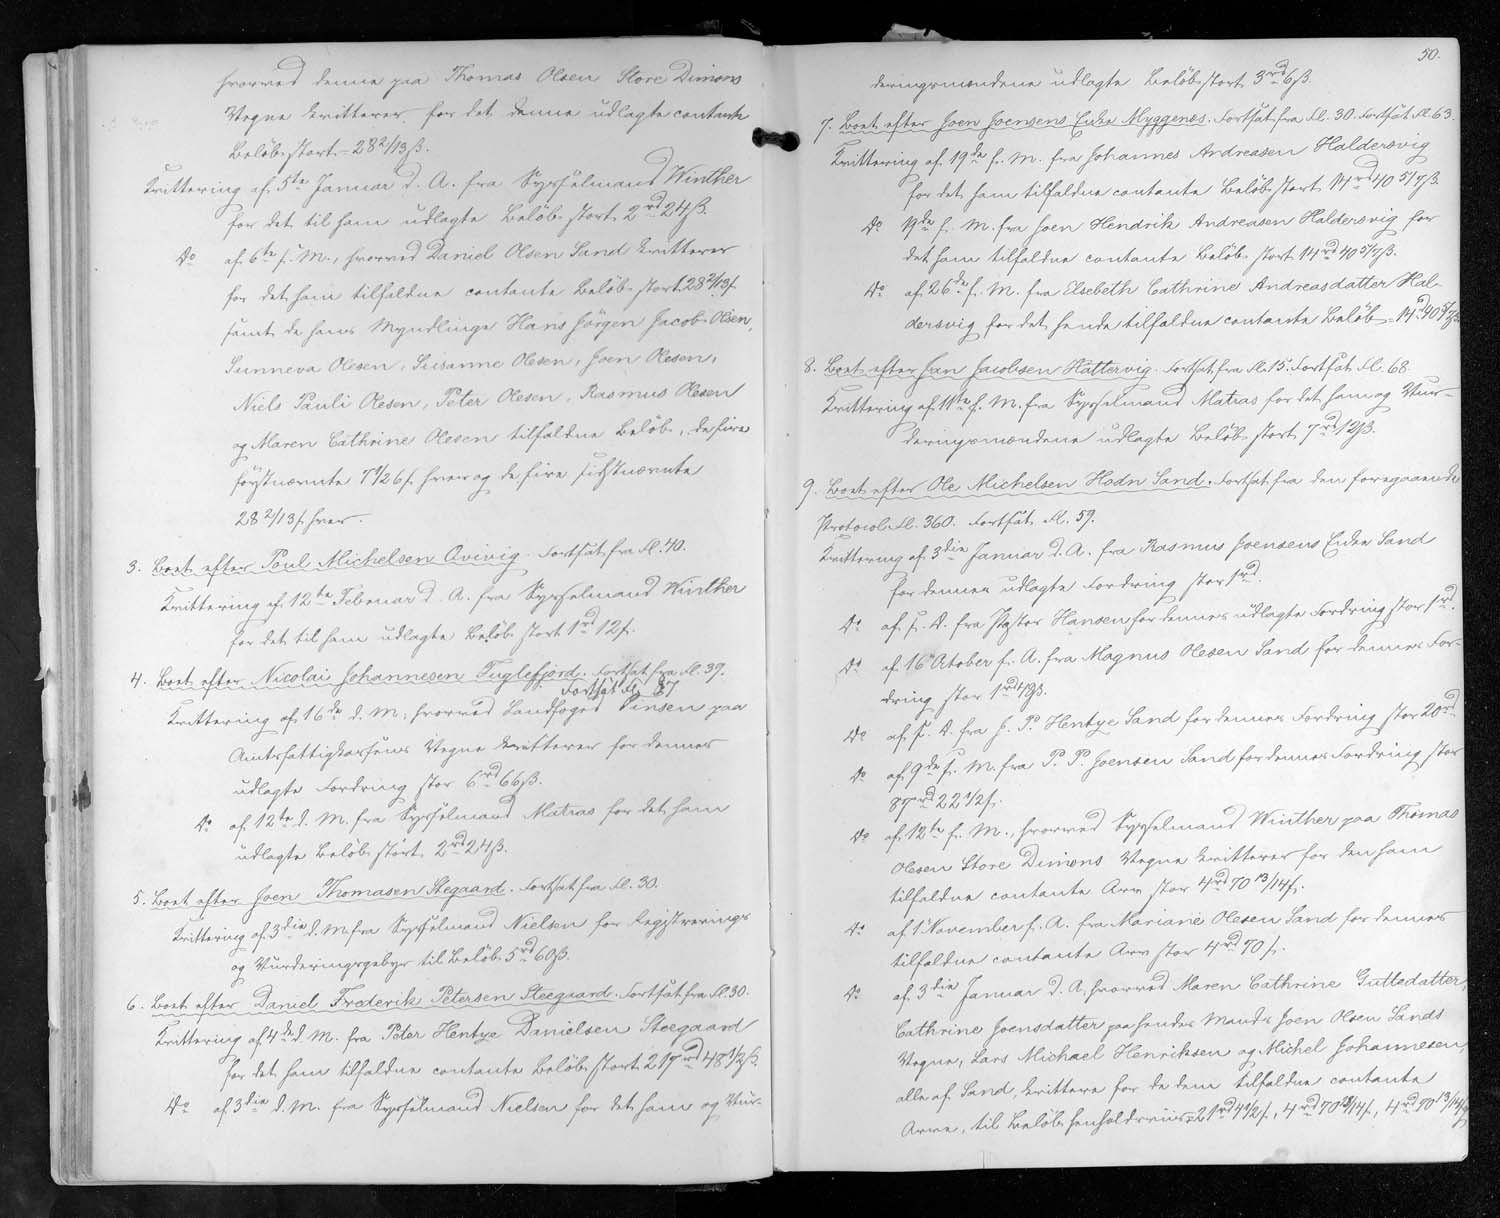 hvorved denne paa Thomas Olsen Store Dimons
Vegne kvitterer for det denne udlagte contante
Beløb stort = 28 2/13 ß.
Kvittering af 5te Januar d. A. fra Sysselmand Winther
for det til ham udlagte Beløb stort 2rd 24ß.
do af 6te f. M., hvorved Daniel Olsen Sand kvitterer
for det ham tilfaldne contante Beløb stort 28 2/13 ß.
samt de hans Myndlinge Hans Jörgen Jacob Olsen,
Sunneva Olesen, Susanne Olesen, Joen Olesen,
Niels Pauli Olesen, Peter Olesen, Rasmus Olesen
og Maren Cathrine Olesen tilfaldne Beløb, de fire
förstnævnte hver og de fire sidstnævnte
28 2/13 ß. hver.
3. Boet efter Poul Michelsen Qvivig. Fortsat fra Fl. 40.
Kvittering af 12te Februar d. A. fra Sysselmand Winther
for det til ham udlagte Beløb stort 1rd 12ß.
4. Boet efter Nicolai Johannesen Fuglefjord. Fortsat fra Fl. 39.
Fortsat Fl. 87
Kvittering af 16de d. M., hvorved Landfoged Tinsen paa
Amtsfattigkassens Vegne kvitterer for dennes
udlagte Fordring stor 6rd 66ß.
do af 12te d. M. fra Sysselmand Matras for det ham
udlagte Beløb stort 2rd 24ß.
5. Boet efter Joen Thomasen Steegaard. Fortsat fra Fl. 30.
Kvittering af 3die d. M. fra Sysselmand Nielsen for Registrerings
og Vurderingsgebyr til Beløb 5rd 60ß.
6. Boet efter Daniel Frederik Petersen Steegaard. Fortsat fra Fl. 30.
Kvittering af 4de d. M. fra Peter Hentze Danielsen Steegaard
for det ham tilfaldne contante Beløb stort 217rd 48 1/2 ß.
do af 3die d. M. fra Sysselmand Nielsen for det ham og Vur-
50.
deringsmændene udlagte Beløb stort 3rd 6ß.
7. Boet efter Joen Joensens Enke Myggenæs. Fortsat fra Fl. 30. Fortsat Fl. 63.
Kvittering af 19de f. M. fra Johannes Andreasen Haldersvig
for det ham tilfaldne contante Beløb stort 14rd 40 5/7 ß.
do 19de f. M. fra Joen Hendrik Andreasen Haldersvig for
det ham tilfaldne contante Beløb stort 14rd 40 5/7 ß.
do af 26de f. M. fra Elsebeth Cathrine Andreasdatter Hal-
dersvig for det hende tilfaldne contante Beløb = 14rd 40 5/7 ß.
8. Boet efter Jan Jacobsen Hattervig. Fortsat fra Fl. 15. Fortsat Fl. 68.
Kvittering af 11te f. M. fra Sysselmand Matras for det ham og Vur-
deringsmændene udlagte Beløb stort 7rd 12ß.
9. Boet efter Ole Michelsen Hodn Sand. Fortsat fra den foregaaende
Protocol Fl. 360. Fortsat Fl. 59.
Kvittering af 3die Januar d. A. fra Rasmus Joensens Enke Sand
for dennes udlagte Fordring stor 1rd.
do af s. D. fra Pastor Hansen for dennes udlagte Fordring stor 1rd.
do af 16 October f. A. fra Magnus Olesen Sand for dennes For-
dring stor
do af s. D. fra J. P. Hentze Sand for dennes Fordring stor 20rd
do af 9de f. M. fra P. P. Joensen Sand for dennes Fordring stor
87rd 22 1/2 ß.
do af 12te f. M., hvorved Sysselmand Winther paa Thomas
Olesen Store Dimons Vegne kvitterer for den ham
tilfaldne contante Arv stor 4rd 70 13/14 ß.
do af 1 November f. A. fra Mariane Olesen Sand for dennes
tilfaldne contante Arv stor 4rd 70 ß.
do af 3die Januar d. A., hvorved Maren Cathrine Guttesdatter,
Cathrine Joensdatter paa hendes Mands Joen Olsen Sands
Vegne, Lars Michael Henriksen og Michel Johannesen,
alle af Sand, kvittere for de dem tilfaldne contante
Arve, til Beløb henholdsviis = 21rd 4 1/2 ß., 4rd 70 13/14 ß., 4rd 70 13/14 ß.